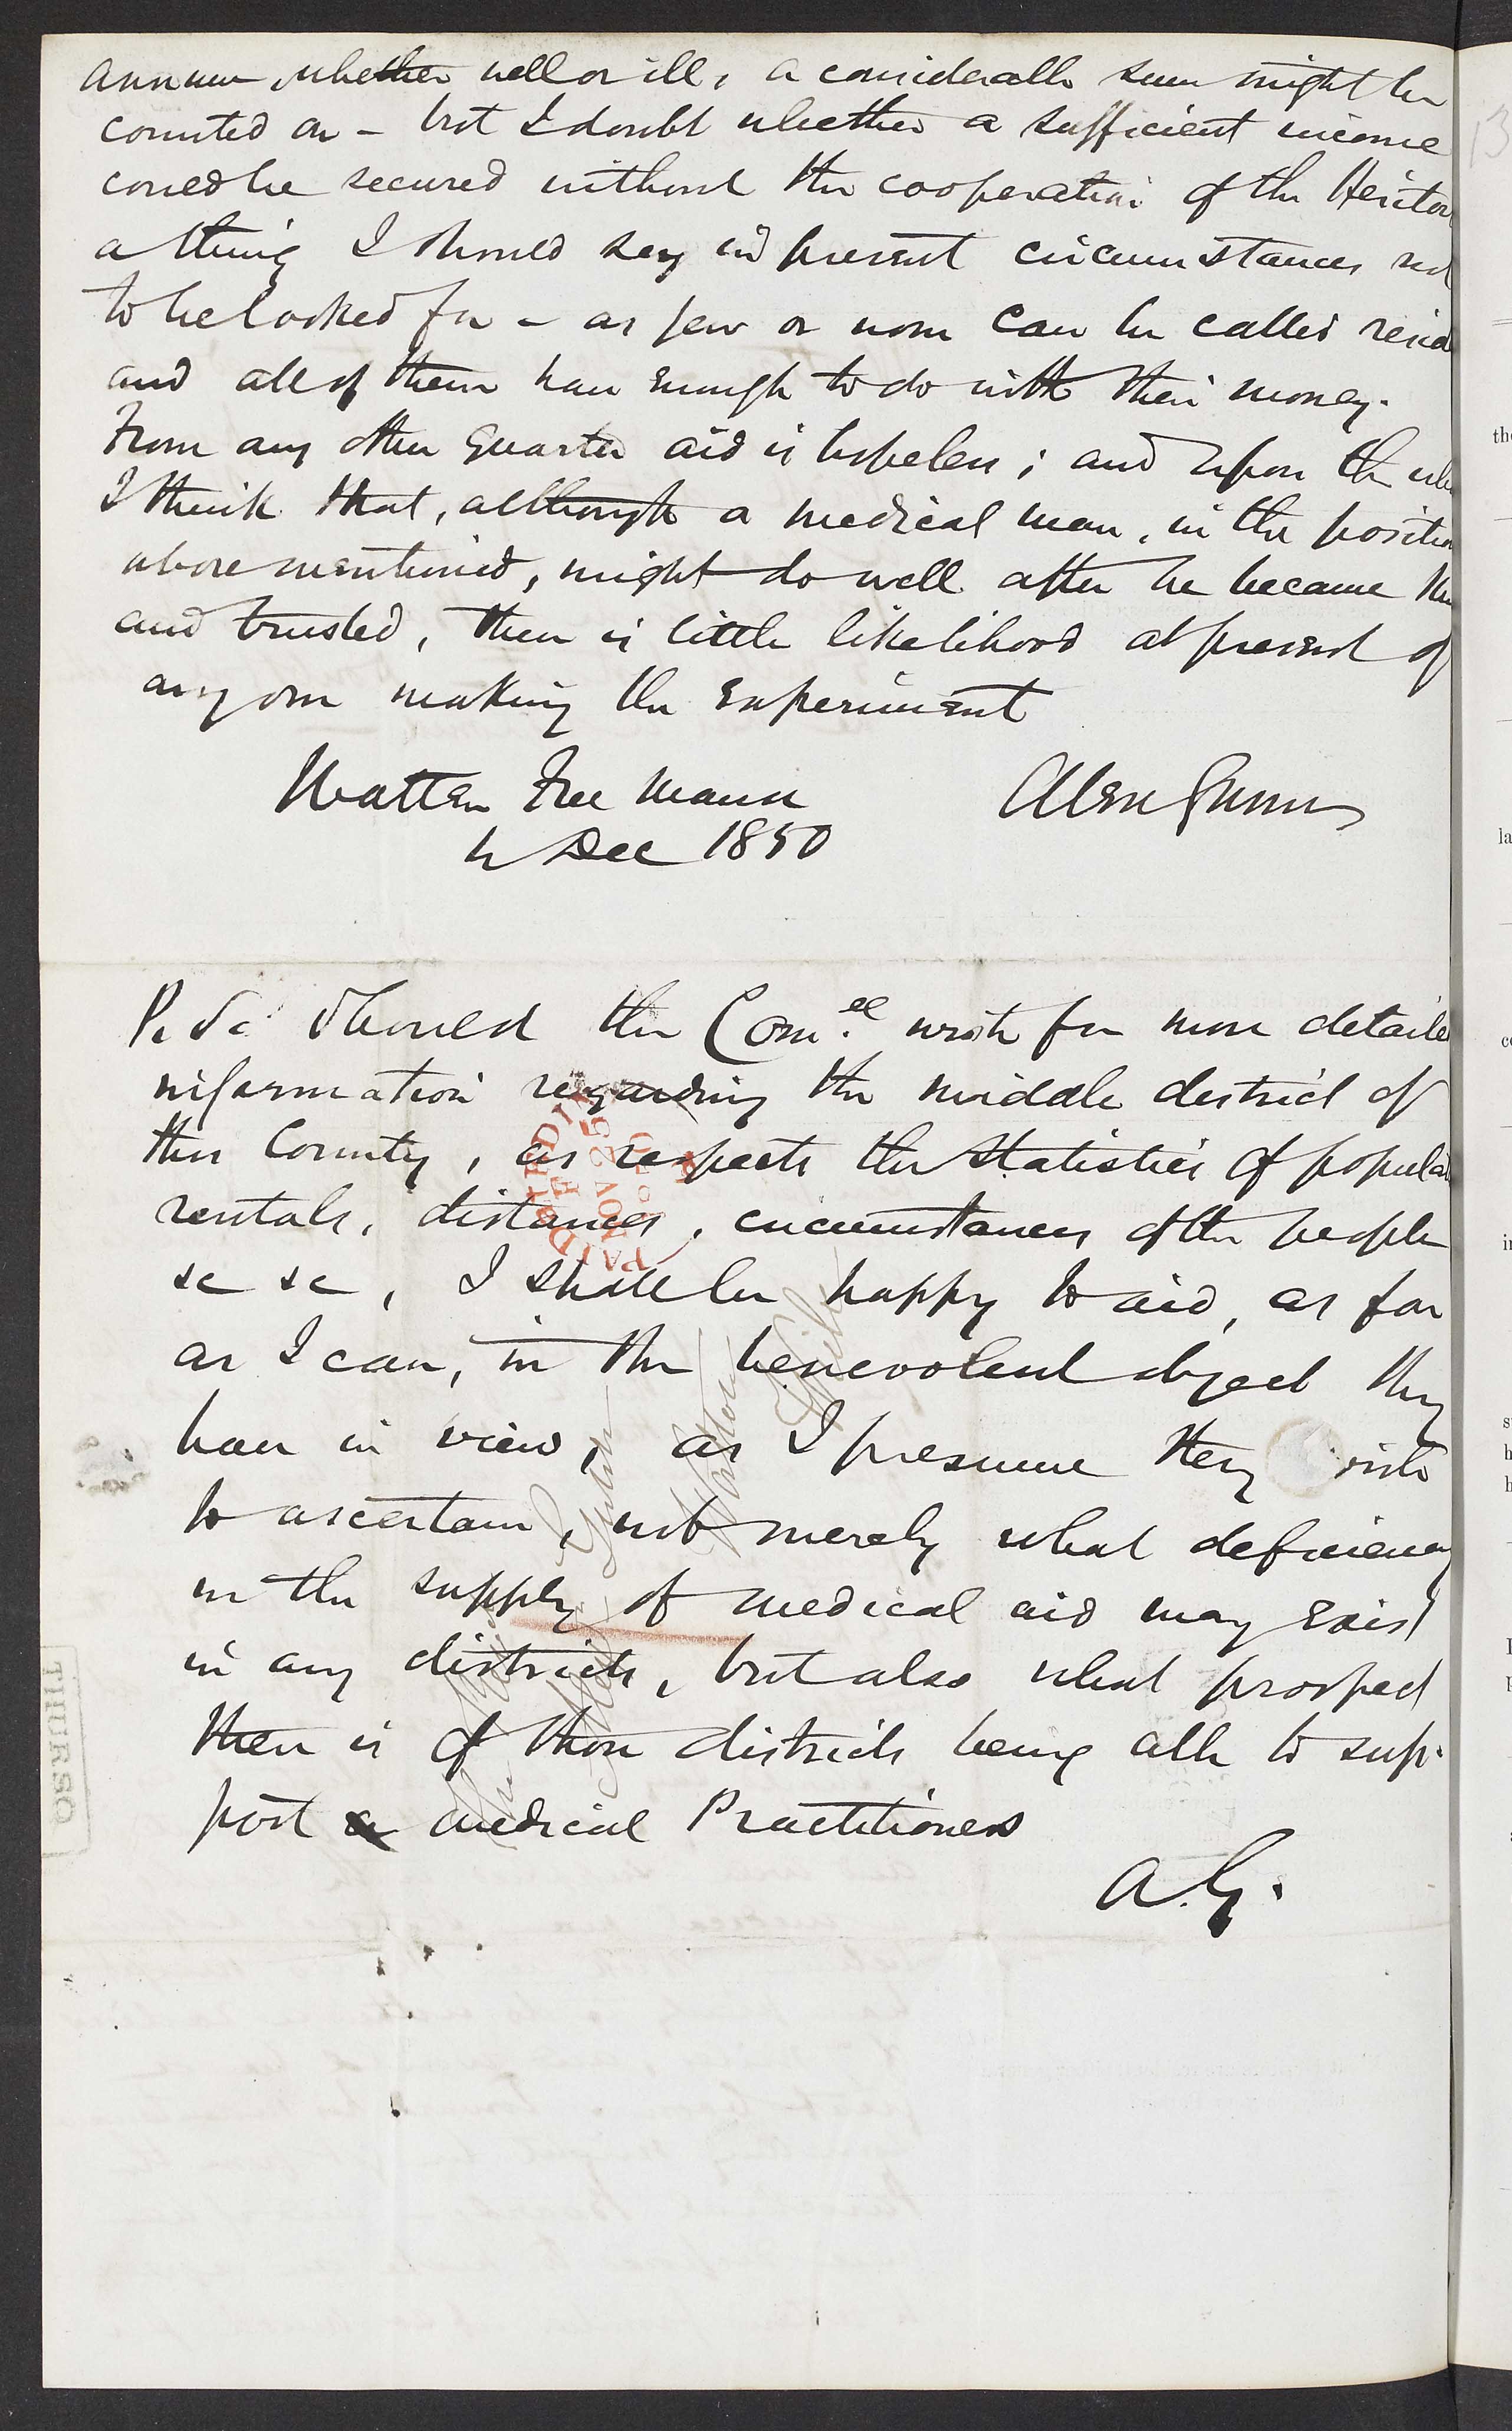 annum, whether well or ill, a considerable sum might be
counted on - but I doubt whether a sufficient income
could be secured without the cooperation of the Heritor
a thing I should say in present circumstances not
to be looked for - as few or none can be called resid
and all of them have enough to do with their money.
From any other quarter aid is hopeless; and upon the who
I think that, although a medical man, in the position
above mentioned, might do well after he became kn
and trusted, there is little likelihood at present of
any one making the experiment
Watten Free Manse
4 Dec 1850
Alex Gunn
P.S. Should the Com.ee wish for more detailed
information regarding the middle district of
this County, as respects the statistics of popula
rentals, distances, circumstances of the people
&c &c, I shall be happy to aid, as far
as I can, in the benevolent object they
have in view, as I presume they wish
to ascertain, not merely what deficiency
in the supply of medical aid may exist
in any districts, but also what prospect
there is of those districts being able to sup-
port medical Practitioners
A.G.
PAID
NOV 25
THURSO